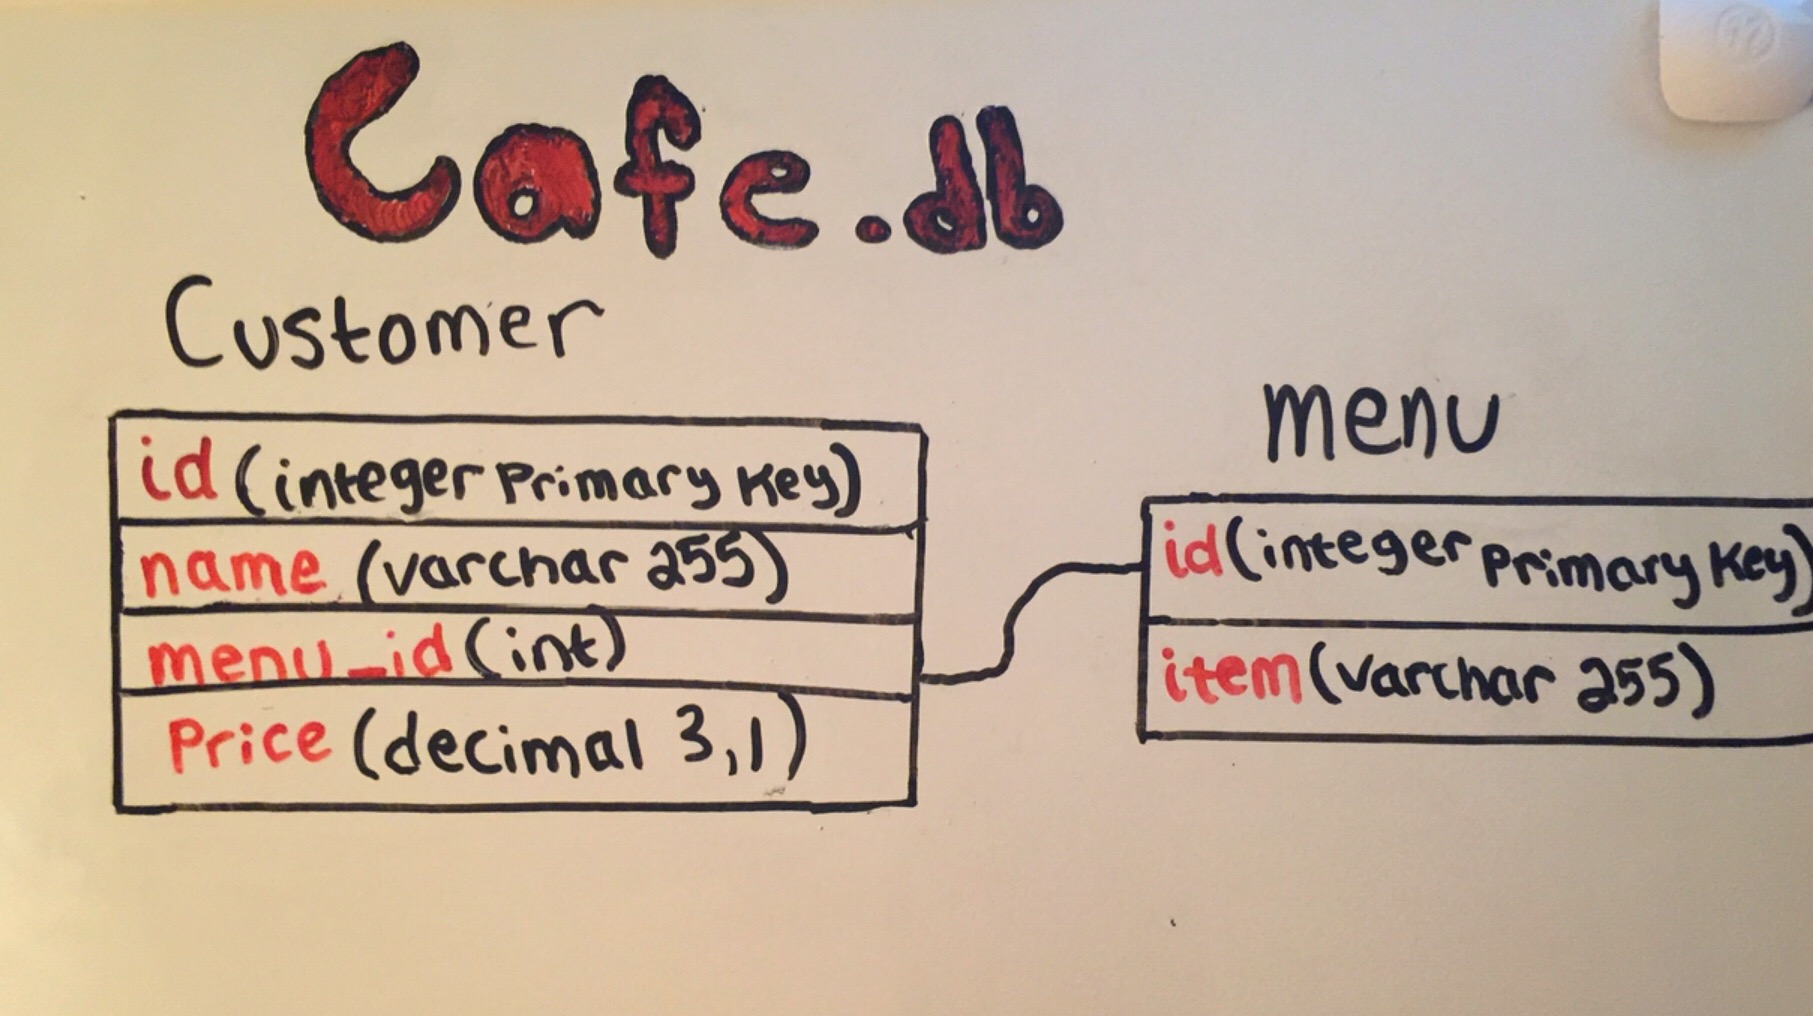 Cafe.db
Customer
id (integer Primary Key)
name (varchar 255)
menu_id (int)
Price (decimal 3,1)
menu
id (integer Primary Key)
item (varchar 255)